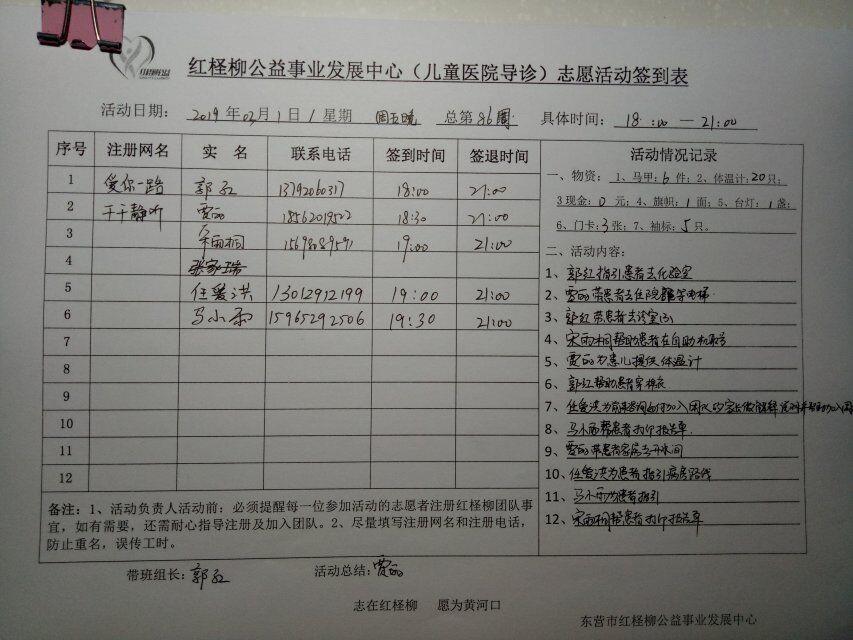 红柽柳公益事业发展中心（儿童医院导诊）志愿活动签到表
活动日期： 2019 年 03 月 1 日 / 星期 周五晚 总第 86 周 具体时间： 18：00 — 21：00
序号 注册网名 实 名 联系电话 签到时间 签退时间 活动情况记录
1 爱你一路 郭红 13792060317 18:00 21:00
2 千千静听 贾丽 18562019502 18:30 21:00
3 宋雨桐 15698089591 19:00 21:00
4
5 任爱洪 13012912199 19:00 21:00
6 马小雨 15965292506 19:30 21:00
7
8
9
10
11
12
一、物资： 1、马甲：6 件；2、体温计：20 只；
3 现金：0 元；4、旗帜：1 面；5、台灯：1 盏；
6、门卡：3 张；7、袖标：5 只。
二、活动内容：
1、郭红指引患者去化验室
2、贾丽带患者去住院部等电梯
3、郭红带患者去诊室
4、宋雨桐帮助患者在自助机取号
5、贾丽为患儿提供体温计
6、郭红帮助患者穿棉衣
7、任爱洪为前来咨询如何加入团队的家长做解释
8、马小雨帮患者打个报告单
9、贾丽带患者家属去开水间
10、任爱洪为患者指引病房路线
11、马小雨为患者指引
12、宋雨桐帮患者打个报告单
备注：1、活动负责人活动前：必须提醒每一位参加活动的志愿者注册红柽柳团队事
宜，如有需要，还需耐心指导注册及加入团队。2、尽量填写注册网名和注册电话，
防止重名，误传工时。
带班组长：郭红 活动总结：贾丽
志在红柽柳 愿为黄河口
东营市红柽柳公益事业发展中心